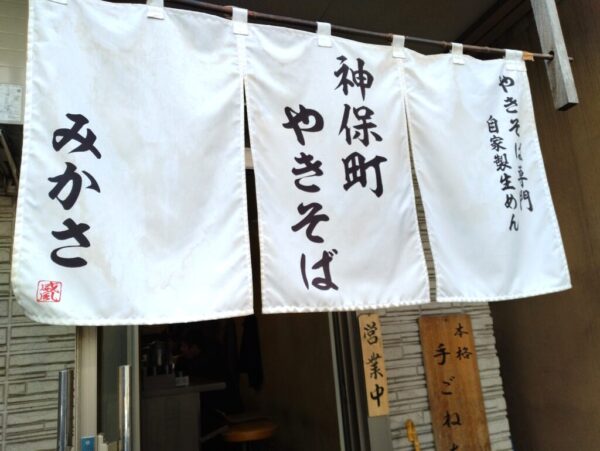 やきそば専門
自家製生めん
神保町
やきそば
みかさ
営業中
本格
手ごね